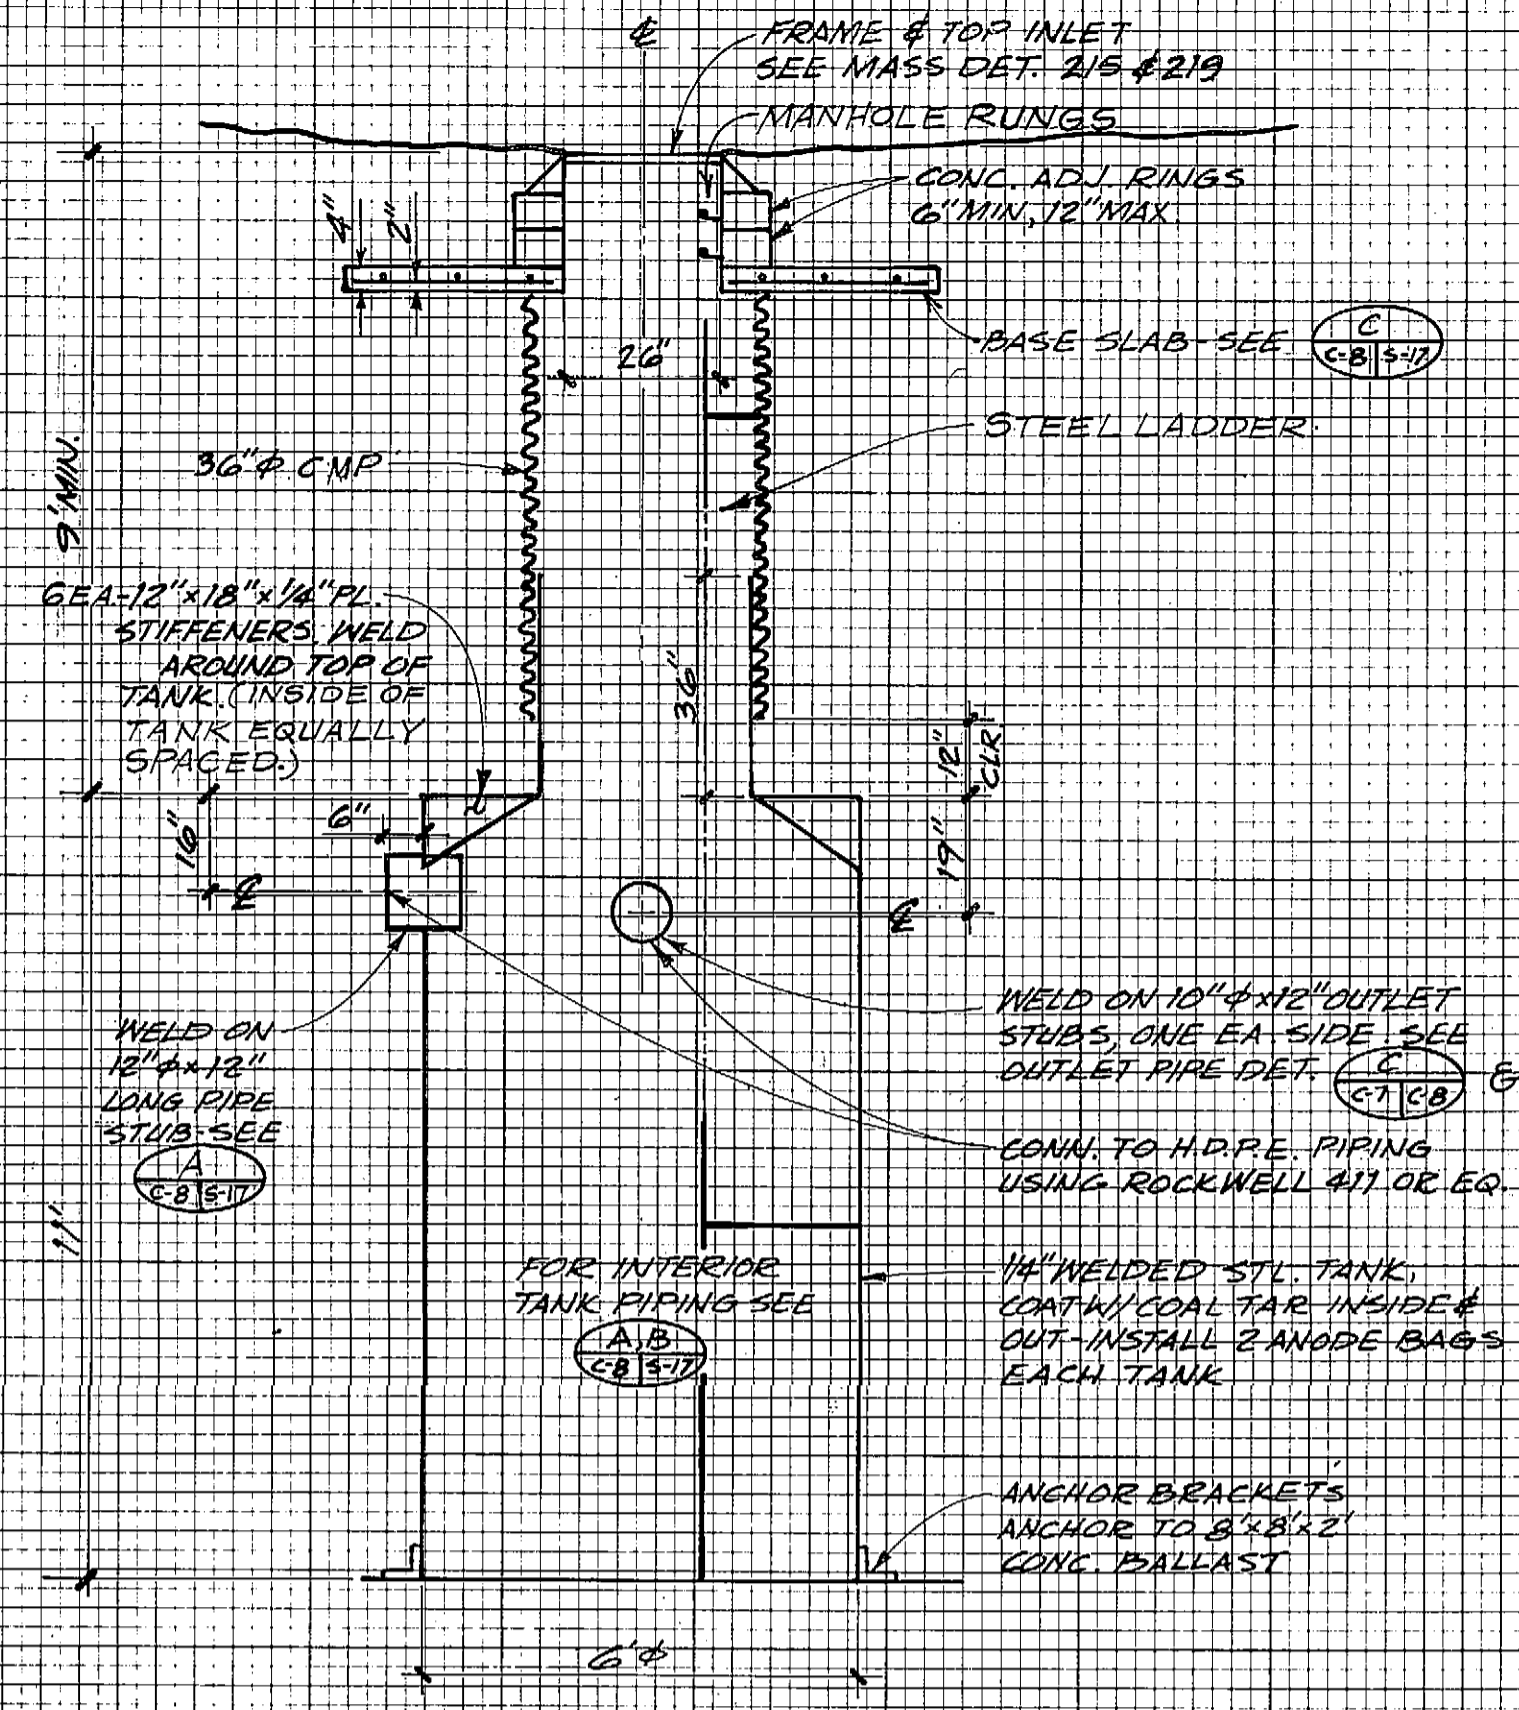 ℄
FRAME & TOP INLET
SEE MASS DET. 215 & 219
MANHOLE RUNGS
CONC. ADJ. RINGS
6" MIN, 12" MAX
4"
2"
BASE SLAB-SEE
C
C-8 S-17
26"
STEEL LADDER
36"⌀ CMP
9' MIN.
6 EA.-12"x18"x1/4" PL.
STIFFENERS, WELD
AROUND TOP OF
TANK. (INSIDE OF
TANK EQUALLY
SPACED.)
36"
12"
CLR
16"
6"
19"
℄
℄
WELD ON
12"⌀x12"
LONG PIPE
STUB-SEE
A
C-8 S-17
WELD ON 10"⌀x12" OUTLET
STUBS, ONE EA. SIDE, SEE
OUTLET PIPE DET.
C
C-7 C-8
&
CONN. TO H.D.P.E. PIPING
USING ROCKWELL 411 OR EQ.
11'
FOR INTERIOR
TANK PIPING SEE
A, B
C-8 S-17
1/4" WELDED STL. TANK,
COAT W/ COAL TAR INSIDE &
OUT-INSTALL 2 ANODE BAGS
EACH TANK
ANCHOR BRACKETS
ANCHOR TO 8'x8'x2'
CONC. BALLAST
6'⌀